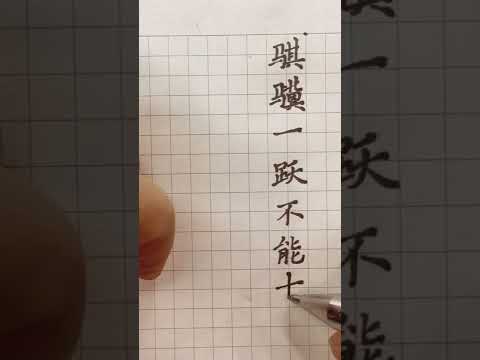 骐骥一跃不能十